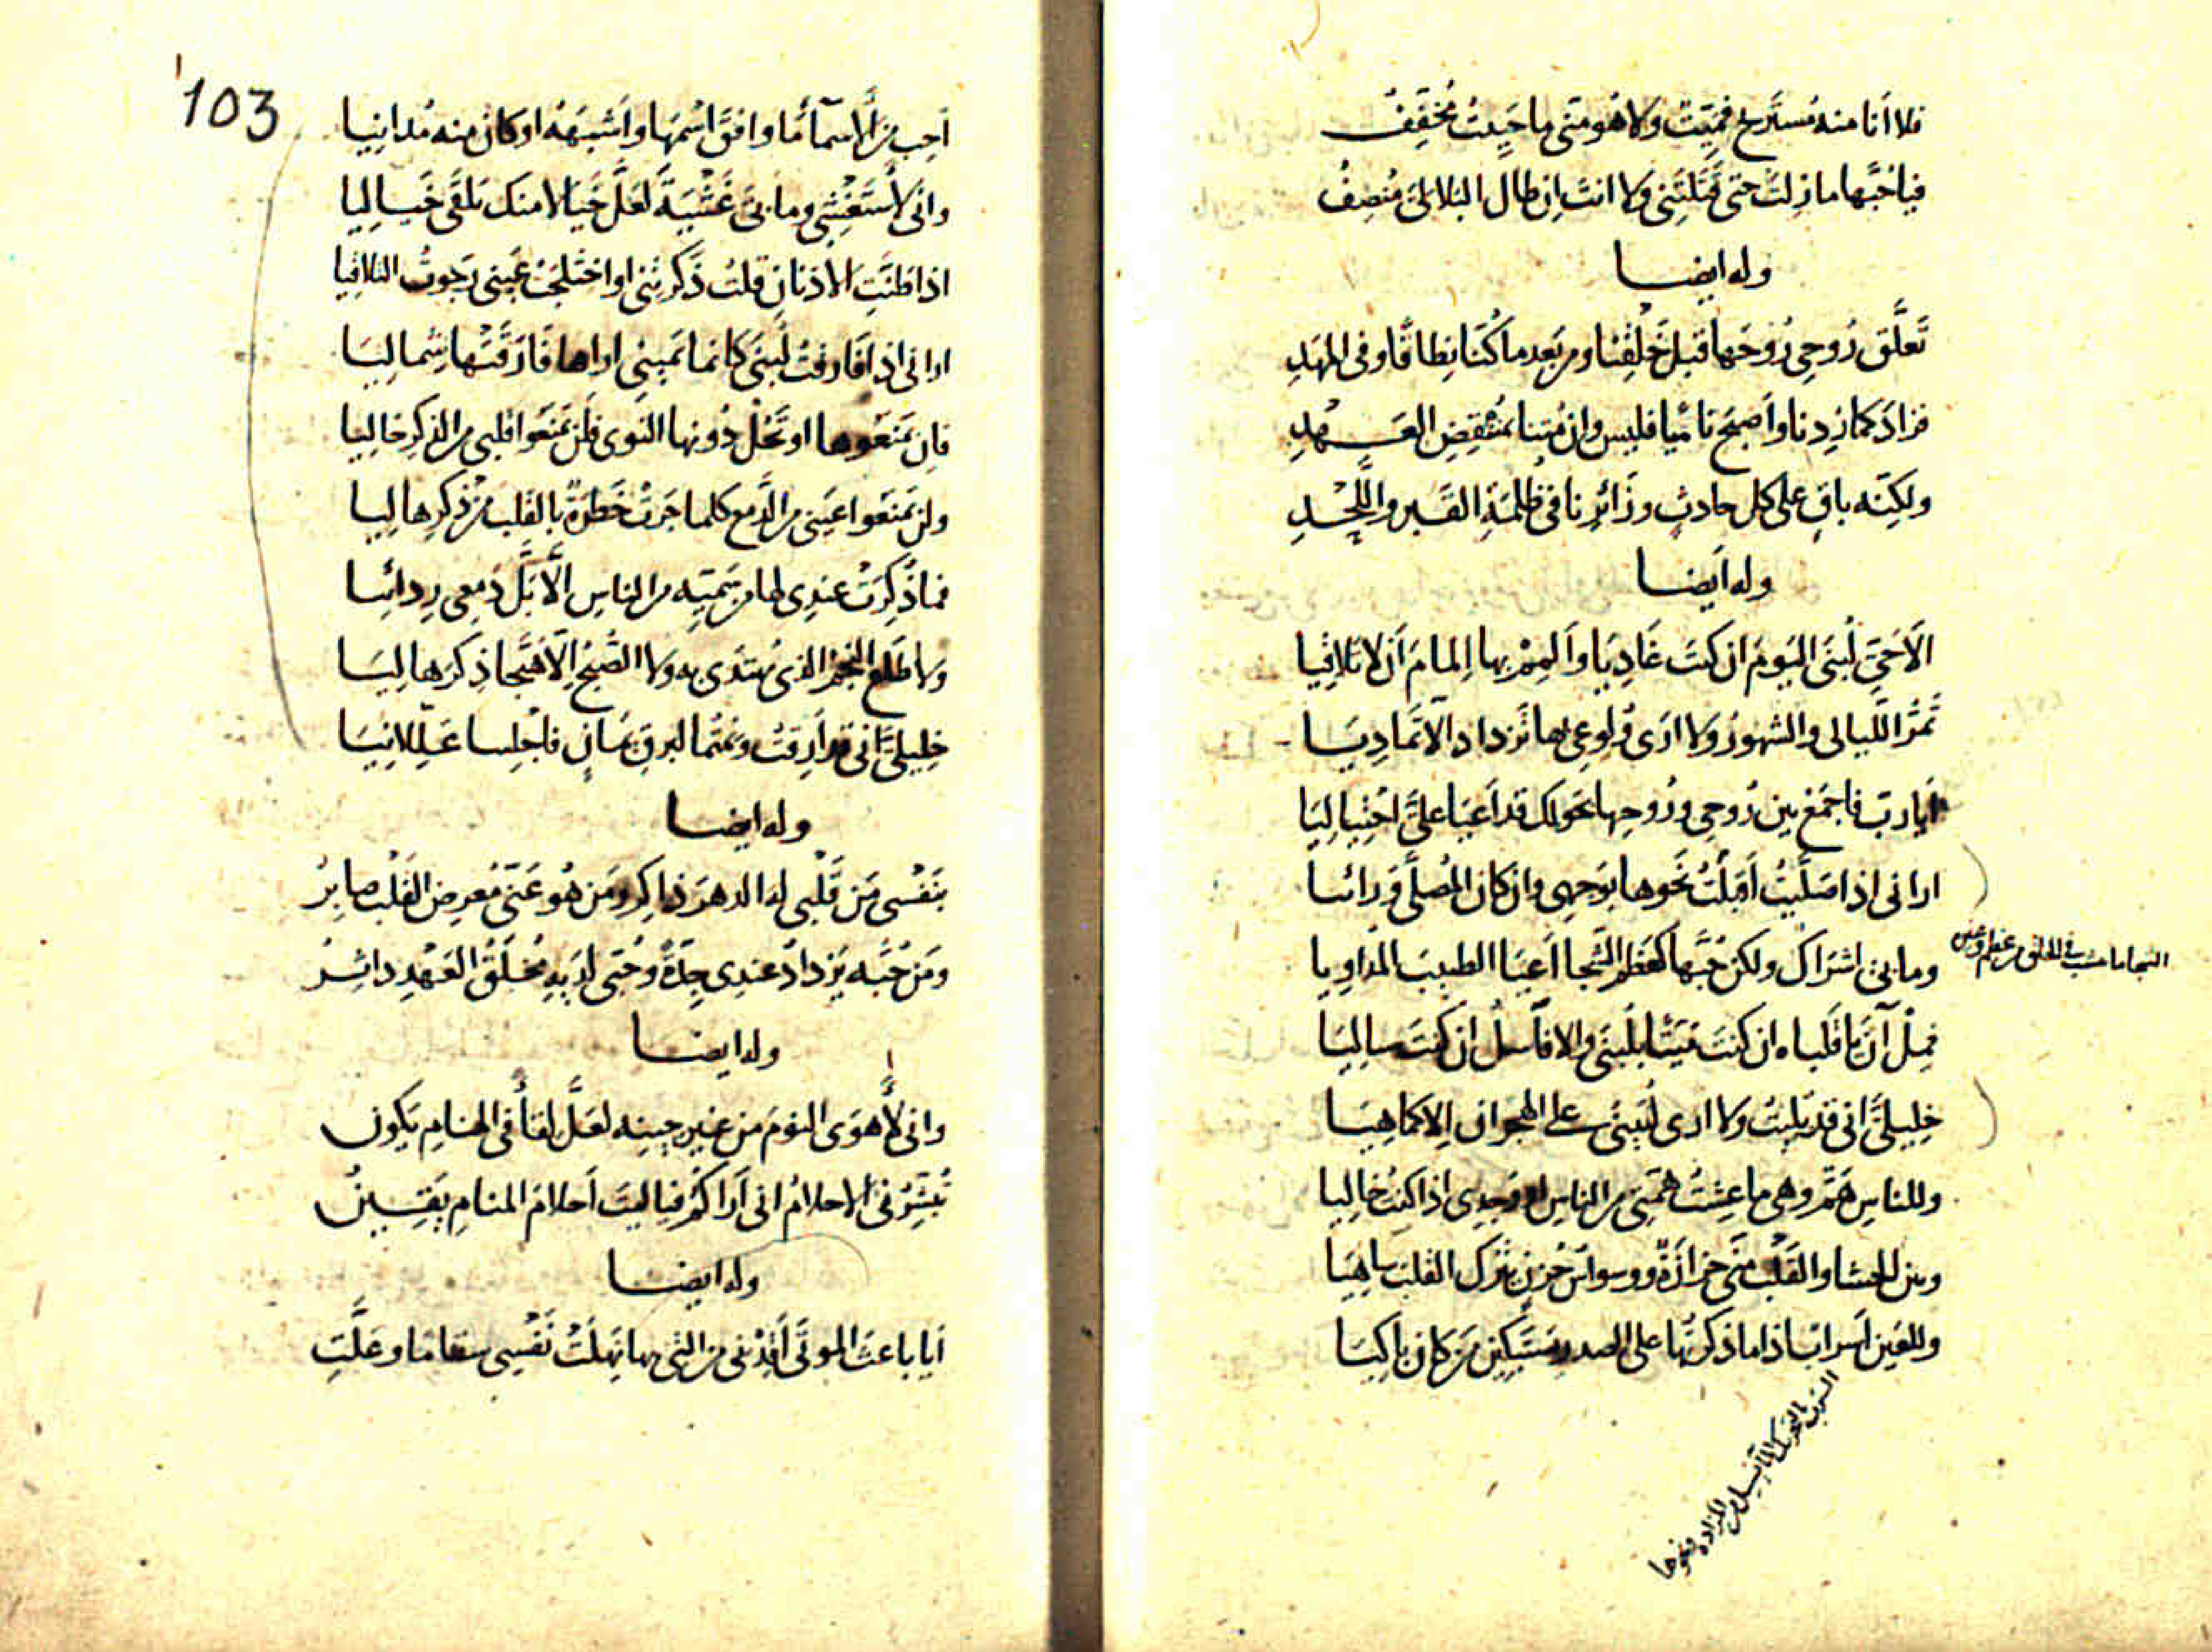 فلا أنا منه مستريح فميّت ولا هو منى ما حييت مخفف
فيا حبّها ما زلت حتى قتلتنى ولا انت ان طال البلا لى منصف
وله ايضا
تعلّق روحى روحها قبل خلقنا ومن بعد ما كنا نطافا وفى المهد
فزاد كما زدنا وأصبح ناميا فليس وان متنا بمنقض العهد
ولكنه باق على كل حادث وزائرنا فى ظلمة القبر واللحد
وله ايضا
الا حىّ لبنى اليوم ان كنت غاديا وألمم بها المام أن لا تلاقيا
تمرّ الليالى والشهور ولا ارى ولوعى بها تزداد الا تماديا
أيا ربّ فاجمع بين روحى وروحها بحولك قد أعيا علىّ احتياليا
ارانى اذا صلّيت أقبلت نحوها بوجهى وان كان المصلّى ورائيا
وما بى اشراك ولكن حبّها كعظم الشجا أعيا الطبيب المداويا
الشجا ما ينشب فى الحلق من عظم وغيره
فمل آن يا قلباه ان كنت ميتا بلبنى والا فاسل ان كنت ساليا
خليلىّ انى قد بليت ولا ارى لبينى على الهجران الا كما هيا
وللناس همّ وهى ما عشت همّتى من الناس او وجدى اذا كنت خاليا
وبين الحشا والقلب منّى حزازة ووسواس حزن يترك القلب ساهيا
وللعين أسراب اذا ما ذكرتها على الصدر يستبكين من كان باكيا
السرب بالتحريك الماء يسيل من المزاده ونحوها
103
أحب من الاسمآء ما وافق اسمها وأشبهه او كان منه مدانيا
وانى لأستغشى وما بى غشية لعلّ خيالا منك يلقى خياليا
اذا طنّت الاذنان قلت ذكرتنى او اختلجت عينى رجوت التلاقيا
ارانى اذا فارقت لبنى كانما يمينى اراها فارقتها شماليا
فان يمنعوها او تحل دونها النوى فلن يمنعوا قلبى من الذكر خاليا
ولن يمنعوا عينى من الدمع كلما جرت خطرة بالقلب من ذكرها ليا
فما ذكرت عندى لها من سميّه من الناس الّا بلّ دمعى ردائيا
ولا طلع النجم الذى يهتدى به ولا الصبح الا هيّجا ذكرها ليا
خليلىّ انى قد أرقت ونمتما لبرق يمان فاجلسا علّلانيا
وله ايضا
بنفسى من قلبى له الدهر ذاكر ومن هو عنّى معرض القلب صابر
ومن حبّه يزداد عندى جدة وحبى لديه مخلق العهد داثر
وله ايضا
وانى لأهوى النوم من غير حينه لعلّ لقآء فى المنام يكون
تبشّرنى الاحلام انى أراكم فيا ليت أحلام المنام يقين
وله ايضا
أيا باعث الموتى أقدنى من التى بها نهلت نفسى سقاما وعلّت